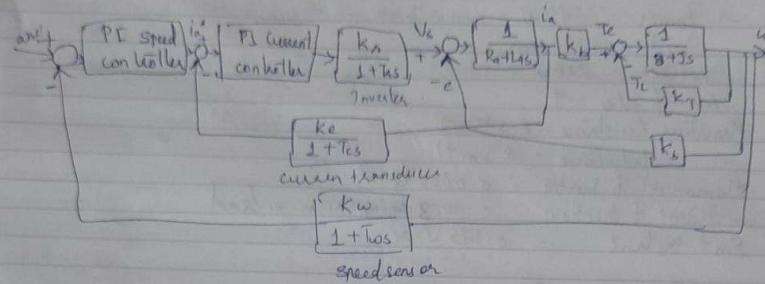 PI speed
controller
ia*
PI current
controller
Kr
1+Trs
Inverter
Va
+
-e
1
Ra+Las
ia
Kb
Te
+
1
B+Js
TL
Kb
Kc
1+Tcs
current transducer
Kω
1+Tωs
speed sensor